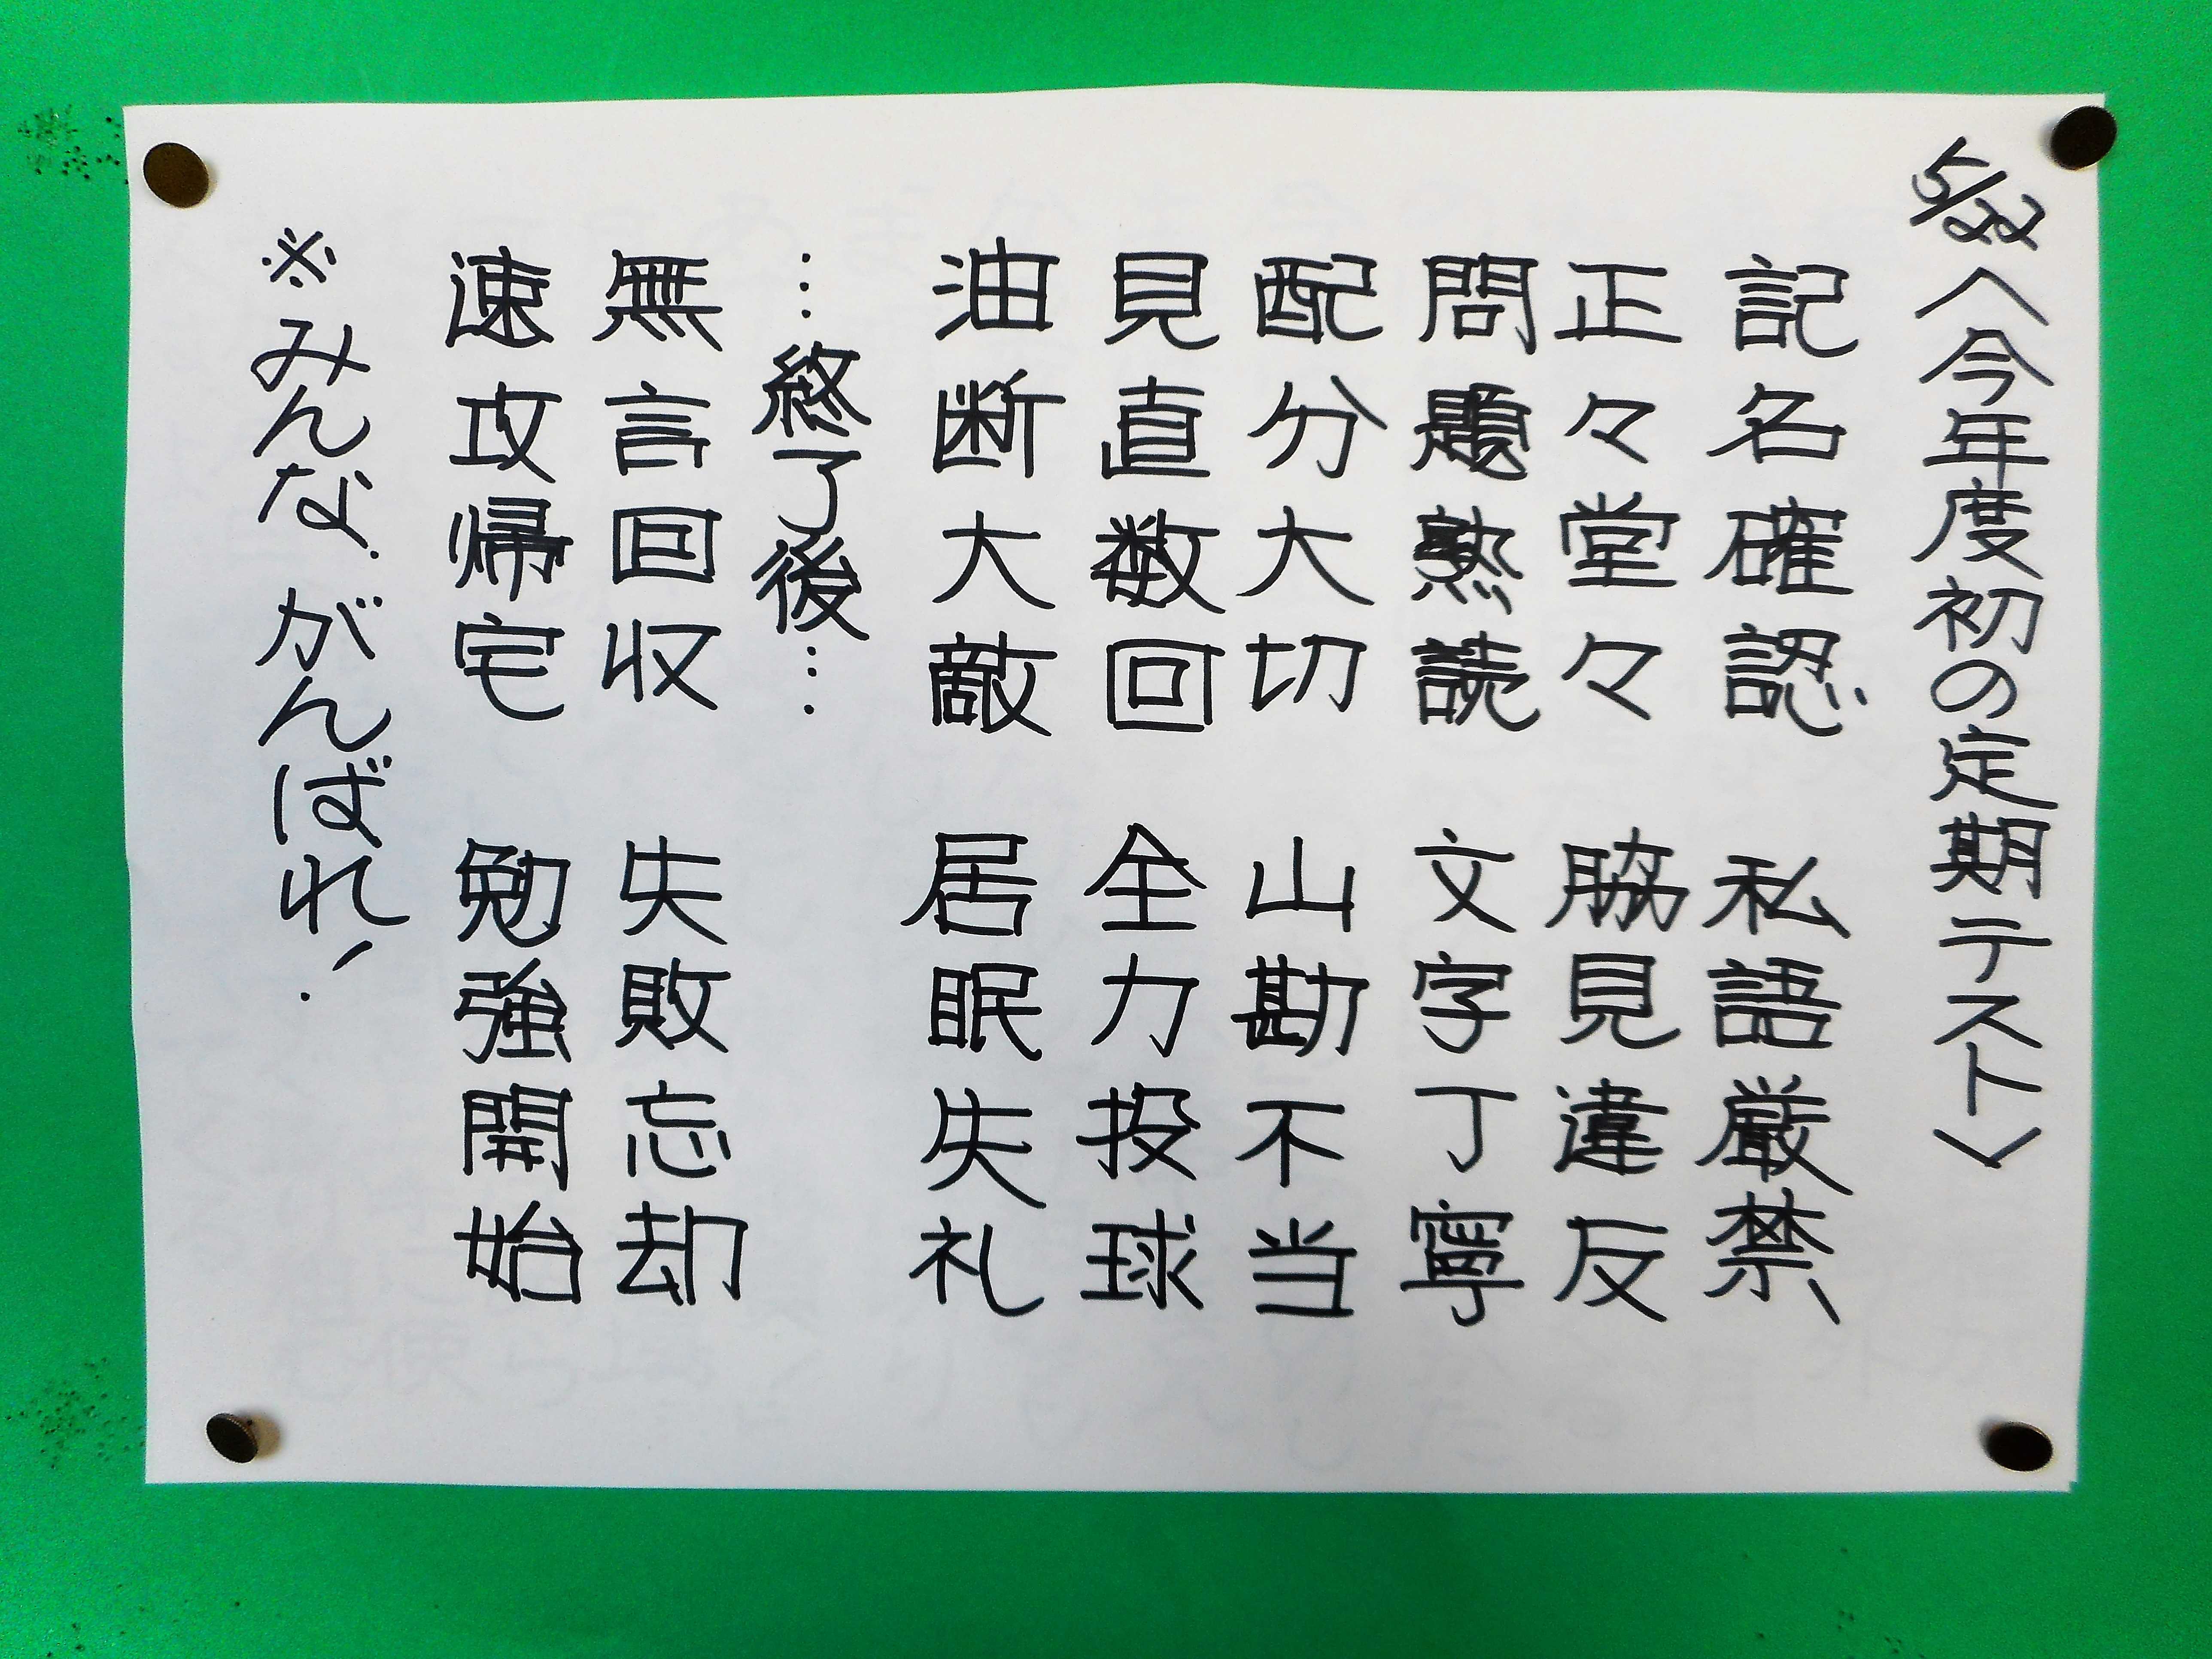 5/22〈今年度初の定期テスト〉
記名確認 私語厳禁、
正々堂々 脇見違反
問題熟読 文字丁寧
配分大切 山勘不当
見直数回 全力投球
油断大敵 居眠失礼
…終了後…
無言回収 失敗忘却
速攻帰宅 勉強開始
※みんな、がんばれ！